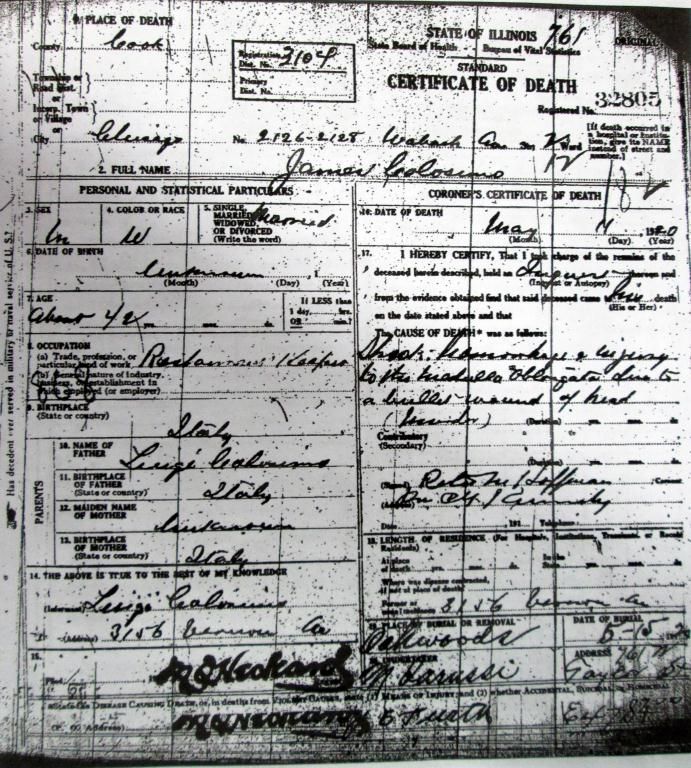 1. PLACE OF DEATH
County Cook
Registration Dist. No. 3104
Primary Dist. No.
STATE OF ILLINOIS 761
State Board of Health Bureau of Vital Statistics
ORIGINAL
STANDARD
CERTIFICATE OF DEATH
Registered No. 32805
Township or Road Dist.
or
Incorp. Town
or Village
or
City Chicago No. 2126-2128 Wabash Av St. Ward
[If death occurred in a hospital or institution, give its NAME instead of street and number.]
2. FULL NAME James Colosimo
PERSONAL AND STATISTICAL PARTICULARS
3. SEX M
4. COLOR OR RACE W
5. SINGLE, MARRIED, WIDOWED, OR DIVORCED (Write the word) Married
6. DATE OF BIRTH
Unknown
(Month) (Day) (Year)
7. AGE
About 42 yrs. mos. ds.
If LESS than 1 day, hrs. OR min.?
8. OCCUPATION
(a) Trade, profession, or particular kind of work Restaurant Keeper
(b) General nature of industry, business, or establishment in which employed (or employer)
9. BIRTHPLACE
(State or country) Italy
PARENTS
10. NAME OF FATHER Luigi Colosimo
11. BIRTHPLACE OF FATHER (State or country) Italy
12. MAIDEN NAME OF MOTHER Unknown
13. BIRTHPLACE OF MOTHER (State or country) Italy
14. THE ABOVE IS TRUE TO THE BEST OF MY KNOWLEDGE
(Informant) Luigi Colosimo
(Address) 3156 Vernon Av
15.
Filed
(P. O. Address)
Has decedent ever served in military or naval service of U. S.?
CORONER'S CERTIFICATE OF DEATH
16. DATE OF DEATH
May 1920
(Month) (Day) (Year)
17. I HEREBY CERTIFY, That I took charge of the remains of the
deceased herein described, held an Inquest thereon and
(Inquest or Autopsy)
from the evidence obtained find that said deceased came to his death
(His or Her)
on the date stated above and that
The CAUSE OF DEATH* was as follows:
Shock, Hemorrhage & injury
to the Medulla Oblongata due to
a bullet wound of head
(Murder) (Duration) yrs. mos. ds.
Contributory
(Secondary)
(Duration) yrs. mos. ds.
(Signed) Peter M Hoffman Coroner
(Address)
Date 191 Telephone
18. LENGTH OF RESIDENCE (For Hospitals, Institutions, Transients, or Recent Residents)
At place of death yrs. mos. ds. In the State yrs. mos. ds.
Where was disease contracted, if not at place of death?
Former or usual residence 3156 Vernon Av
19. PLACE OF BURIAL OR REMOVAL Oakwoods
DATE OF BURIAL 5-15 1920
20. UNDERTAKER
ADDRESS
*State the DISEASE CAUSING DEATH, or, in deaths from VIOLENT CAUSES, state (1) MEANS OF INJURY; and (2) whether ACCIDENTAL, SUICIDAL or HOMICIDAL